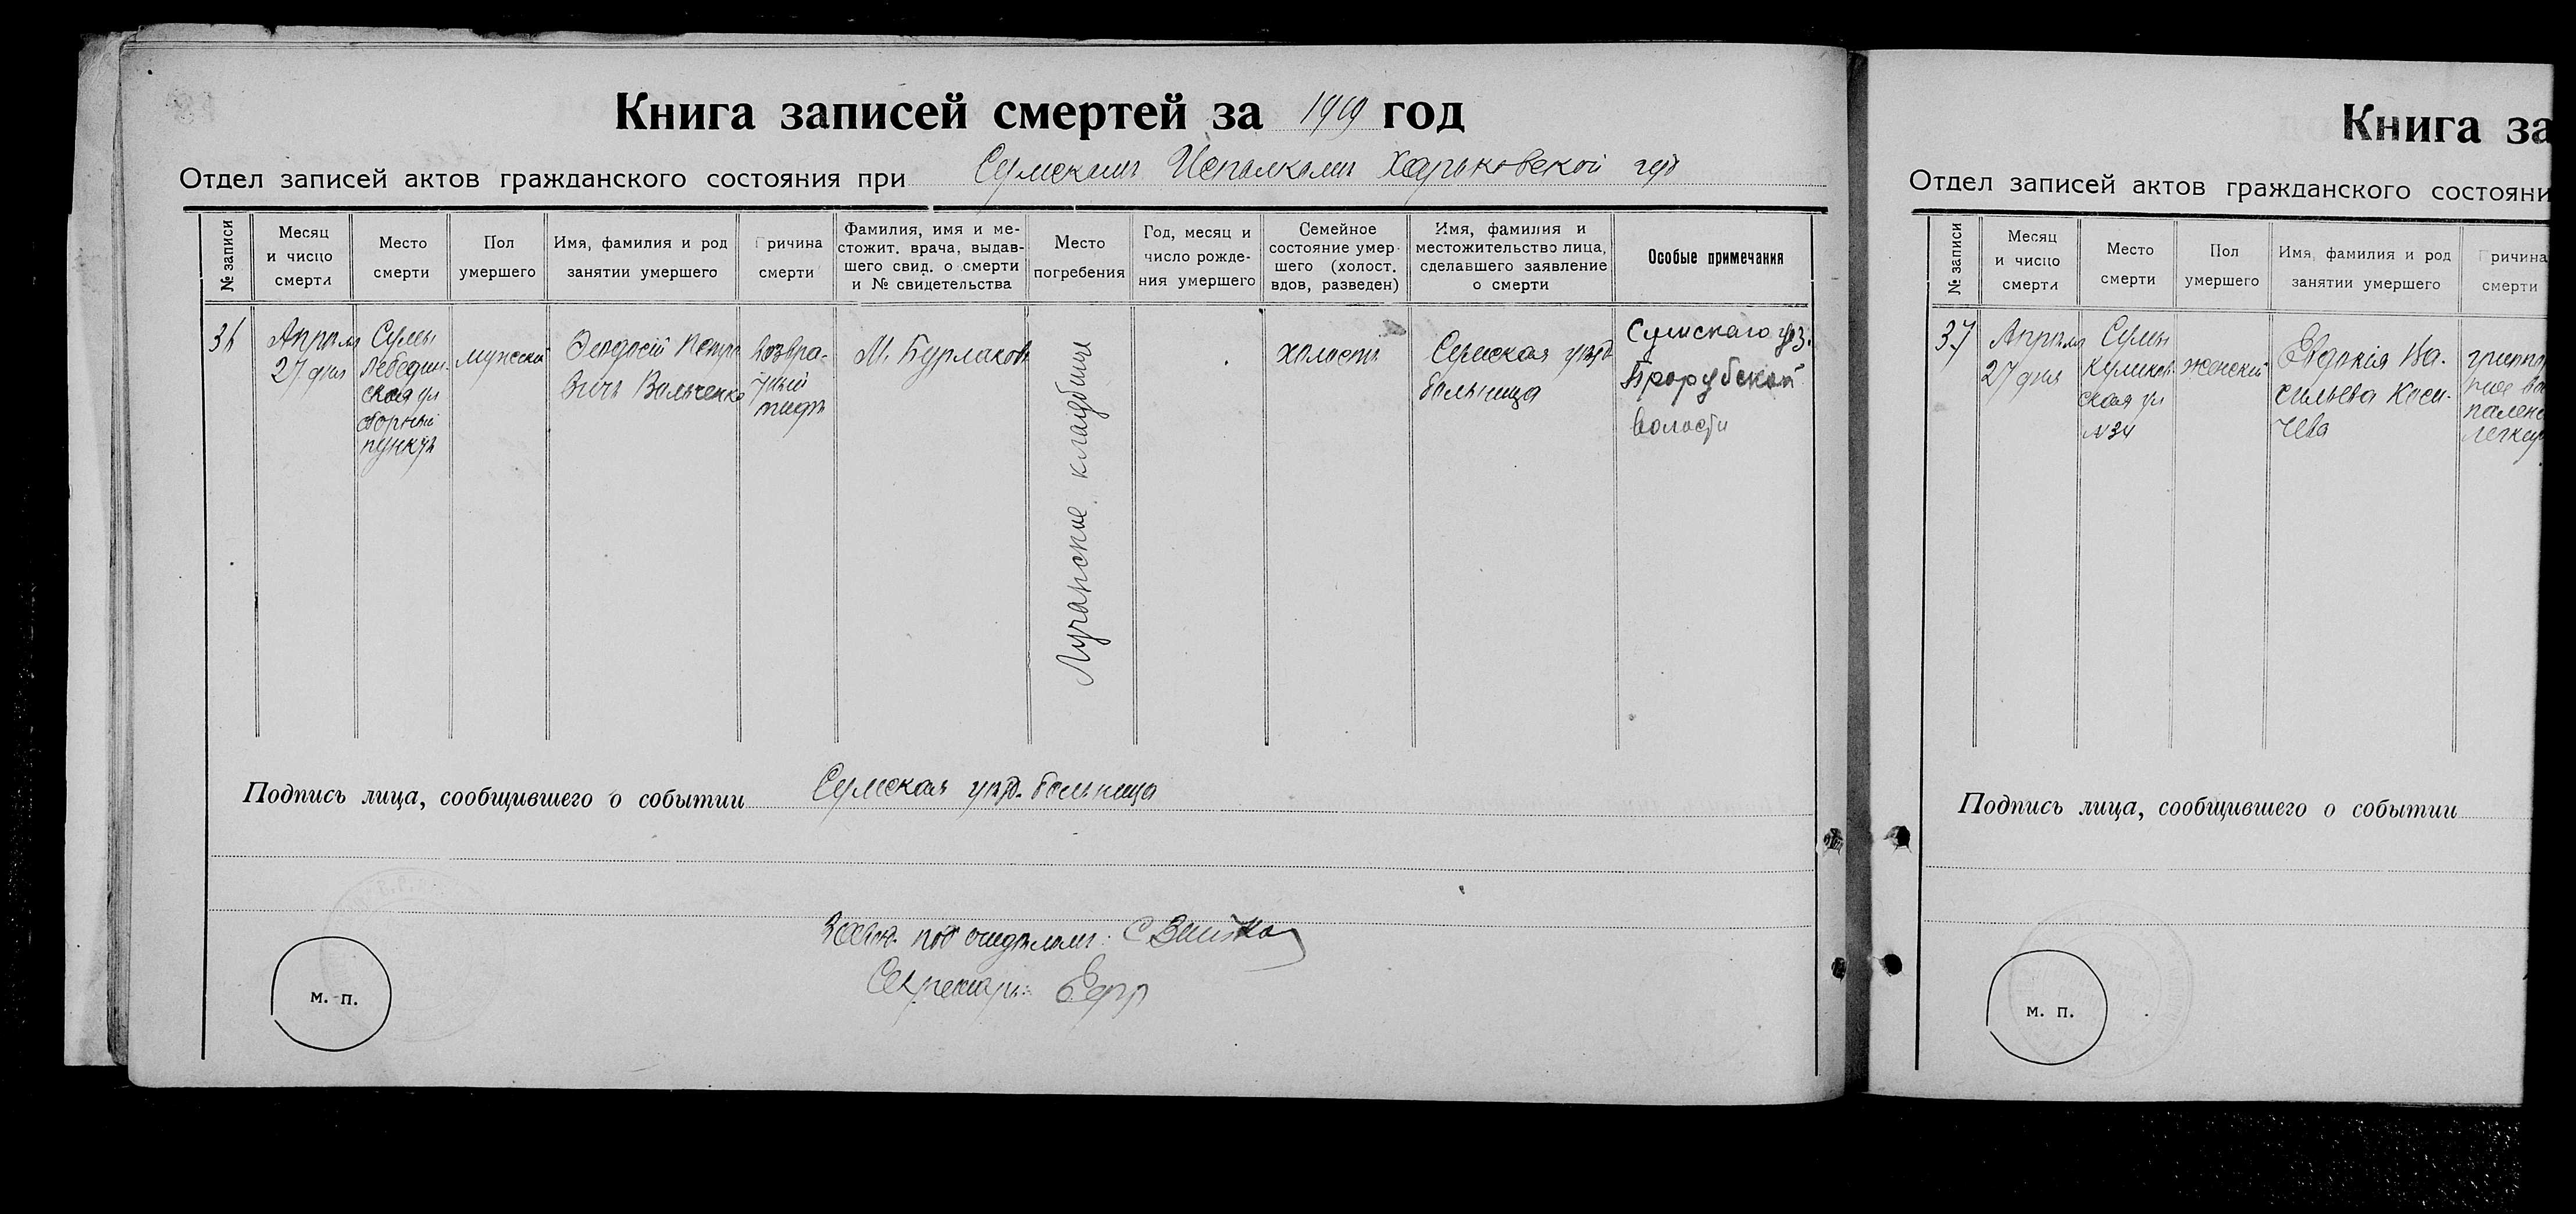 Книга записей смертей за 1919 год
Отдел записей актов гражданского состояния при Сумскомъ Исполкомъ Харьковской губ
№ записи
Месяц
и число
смерти
Место
смерти
Пол
умершего
Имя, фамилия и род
занятии умершего
Причина
смерти
Фамилия, имя и ме-
стожит. врача, выдав-
шего свид. о смерти
и № свидетельства
Место
погребения
Год, месяц и
число рожде-
ния умершего
Семейное
состояние умер-
шего (холост.
вдов, разведен)
Имя, фамилия и
местожительство лица,
сделавшего заявление
о смерти
Особые примечания
36
Апрѣля
27 дня
Сумы
Лебедин-
ская ул
сборный
пунктъ
мужской
Феодосій Петро
вичъ Вольченко
возвра-
тный
тифъ
М. Бурлаковъ
Лучанское кладбище
холостъ
Сумская уѣзд
больница
Сумскаго уѣз.
Прорубской
волости
Подпись лица, сообщившего о событии Сумская уѣзд. больница
Завѣд. под отдѣломъ:
Секретарь:
м. п.
Книга за
Отдел записей актов гражданского состояни
№ записи
Месяц
и число
смерти
Место
смерти
Пол
умершего
Имя, фамилия и род
занятии умершего
Причина
смерти
37
Апрѣля
27 дня
Сумы
Куликов-
ская ул
№34
женскій
Евдокія Ва-
сильева Коси-
чева
гриппо
ное во
палені
легкиx
Подпись лица, сообщившего о событии
м. п.